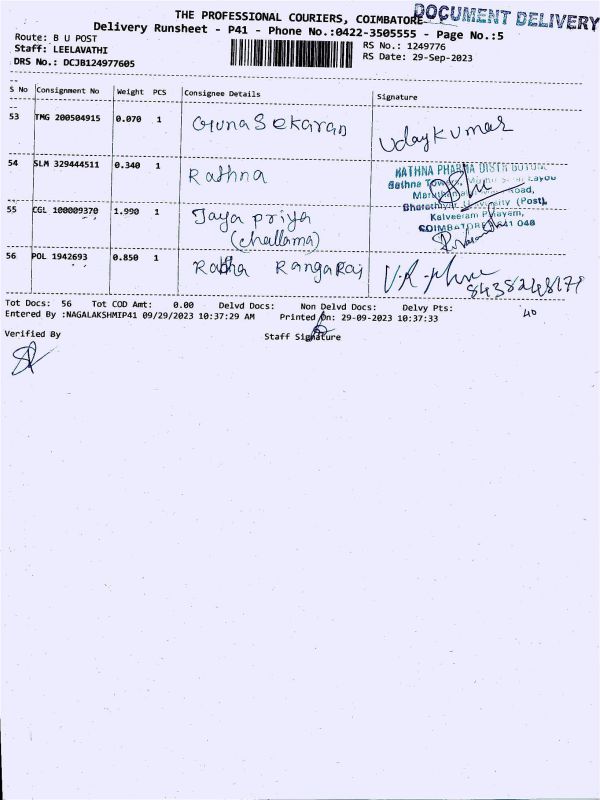 THE PROFESSIONAL COURIERS, COIMBATORE
DOCUMENT DELIVERY
Delivery Runsheet - P41 - Phone No.:0422-3505555 - Page No.:5
Route: B U POST
RS No.: 1249776
Staff: LEELAVATHI
RS Date: 29-Sep-2023
DRS No.: DCJB124977605
S No Consignment No Weight PCS Consignee Details Signature
53 TMG 200504915 0.070 1 Guna Sekaran Udaykumar
54 SLM 329444511 0.340 1 Rathna
RATHNA PHARMA DISTRIBUTORS
Rathna
Road,
Bharathiyar University (Post),
Kalveeram Palayam,
COIMBATORE 641 046
55 CGL 100009370 1.990 1 Jaya priya
(challama)
56 POL 1942693 0.850 1 Radha Rangaraj
Tot Docs: 56 Tot COD Amt: 0.00 Delvd Docs: Non Delvd Docs: Delvy Pts: 40
Entered By :NAGALAKSHMIP41 09/29/2023 10:37:29 AM Printed On: 29-09-2023 10:37:33
Verified By Staff Signature